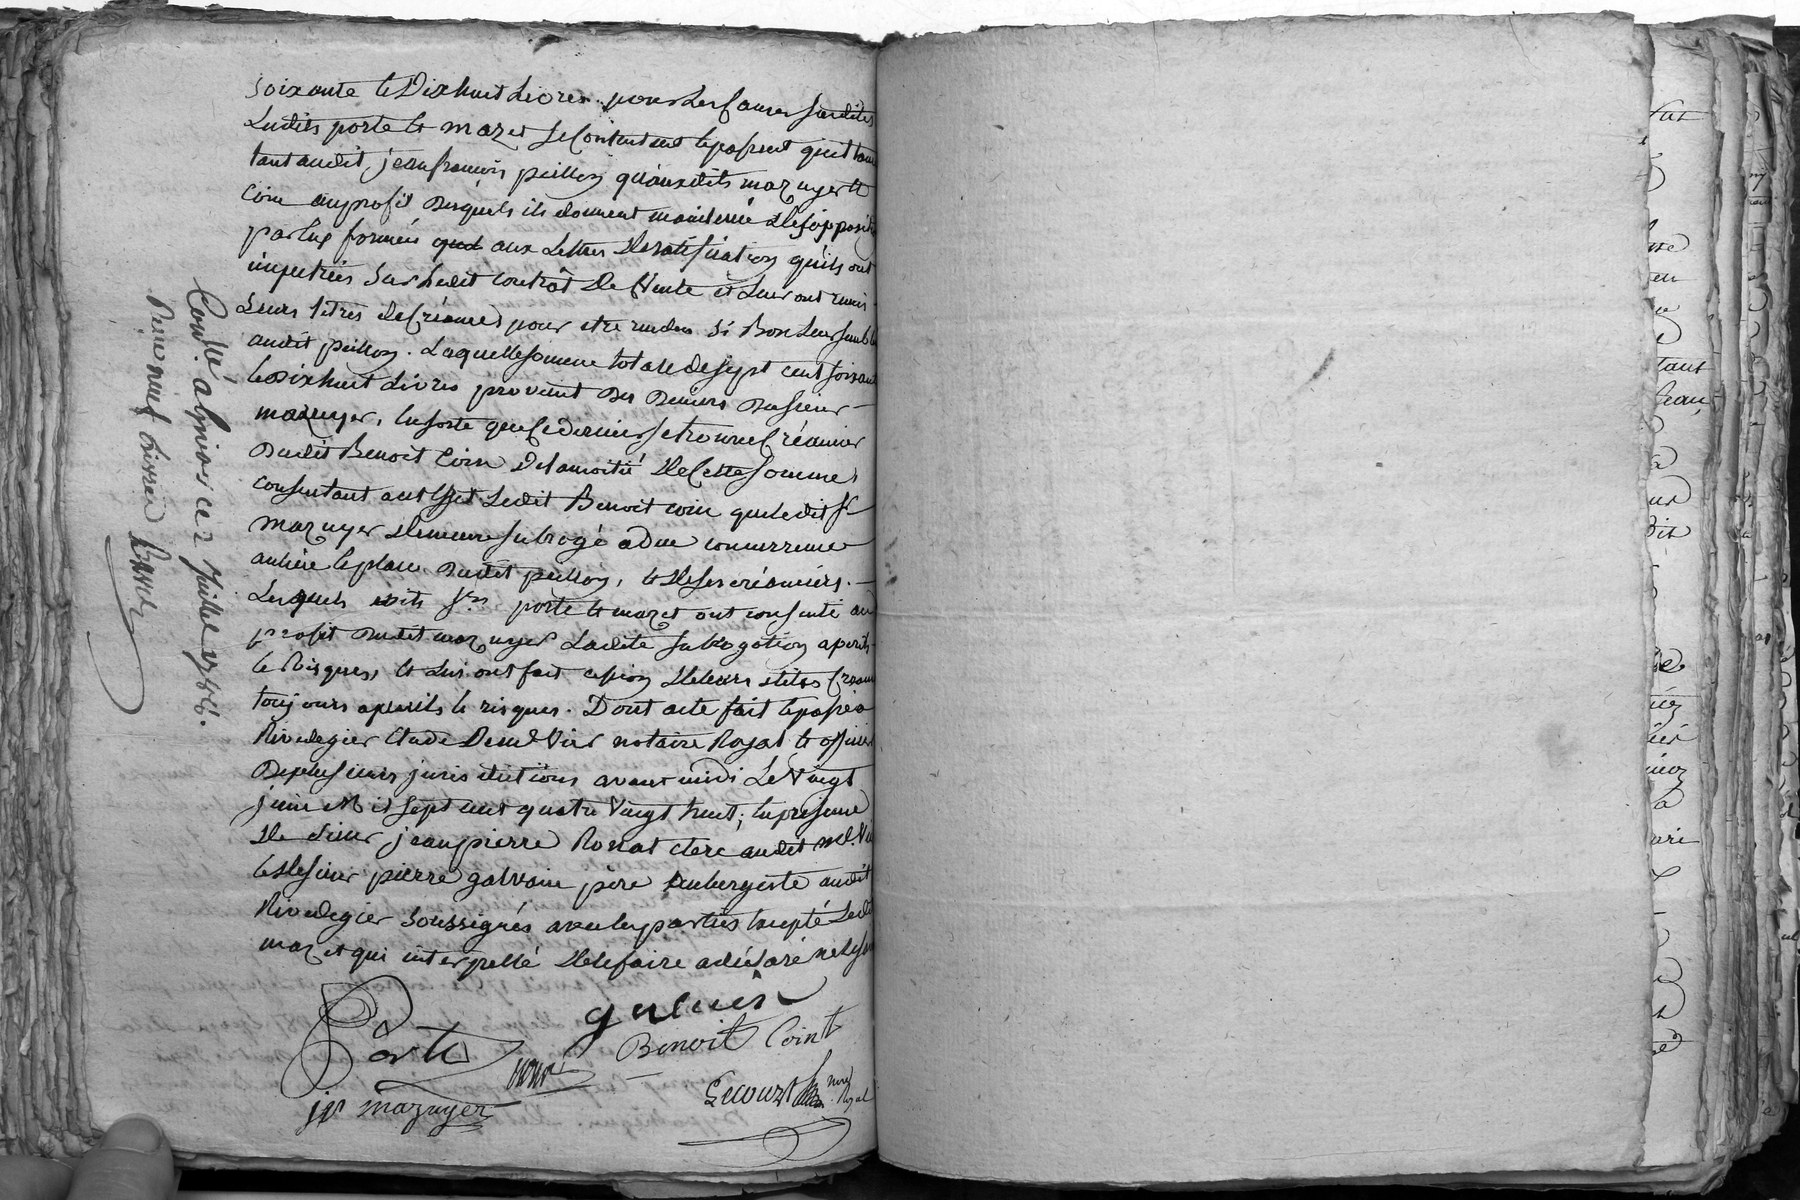 soixante et Dix huit Livres pour les causes susdites
Lesdits porte et mazet se contentent et passent quittance
tant audit jean françois peillon qu'auxdits mazuyer et
Coin au profit desquels ils donnent mainlevée de l'opposition
par lux formée aux Lettres de ratification qu'ils ont
impetrées sur ledit contrât De Vente et Leur ont remis
Leurs titres de Créances pour etre rendus si Bon Leur semble
audit peillon. Laquelle somme totale de sept cent soixante
et Dix huit Livres provient Des Deniers Du sieur
mazuyer, En sorte que ce dernier se trouve Créancier
Dudit Benoit Coin De la moitié De Cette somme
consentant a cet effet Ledit Benoit coin que ledit Sr
mazuyer demeure subrogé a due concurrence
au lieu et place Dudit peillon, et De ses créanciers.
Lesquels dits Srs porte et mazet ont consenti au
profit Dudit mazuyer Ladite subrogation a perils
et Risques, et Lui ont fait cession De leurs dites Créances
toujours a perils et risques. Dont acte fait et passé a
Rivedegier Etude De me Vier notaire Royal et officier
De plusieurs jurisdictions avant midi Le Vingt
juin Mil sept cent quatre Vingt huit; En présence
De sieur jean pierre Ronat clerc audit me Vier
et De sieur pierre galvain père aubergiste audit
Rivedegier soussignés avec les parties Excepté Ledit
mazet qui interpellé De le faire a déclaré ne le savoir
Porte
Benoit Coint
jp mazuyer
Lecourt nore Royal
Conllé a le 2 Juillet 1788.
Reçu neuf Livres